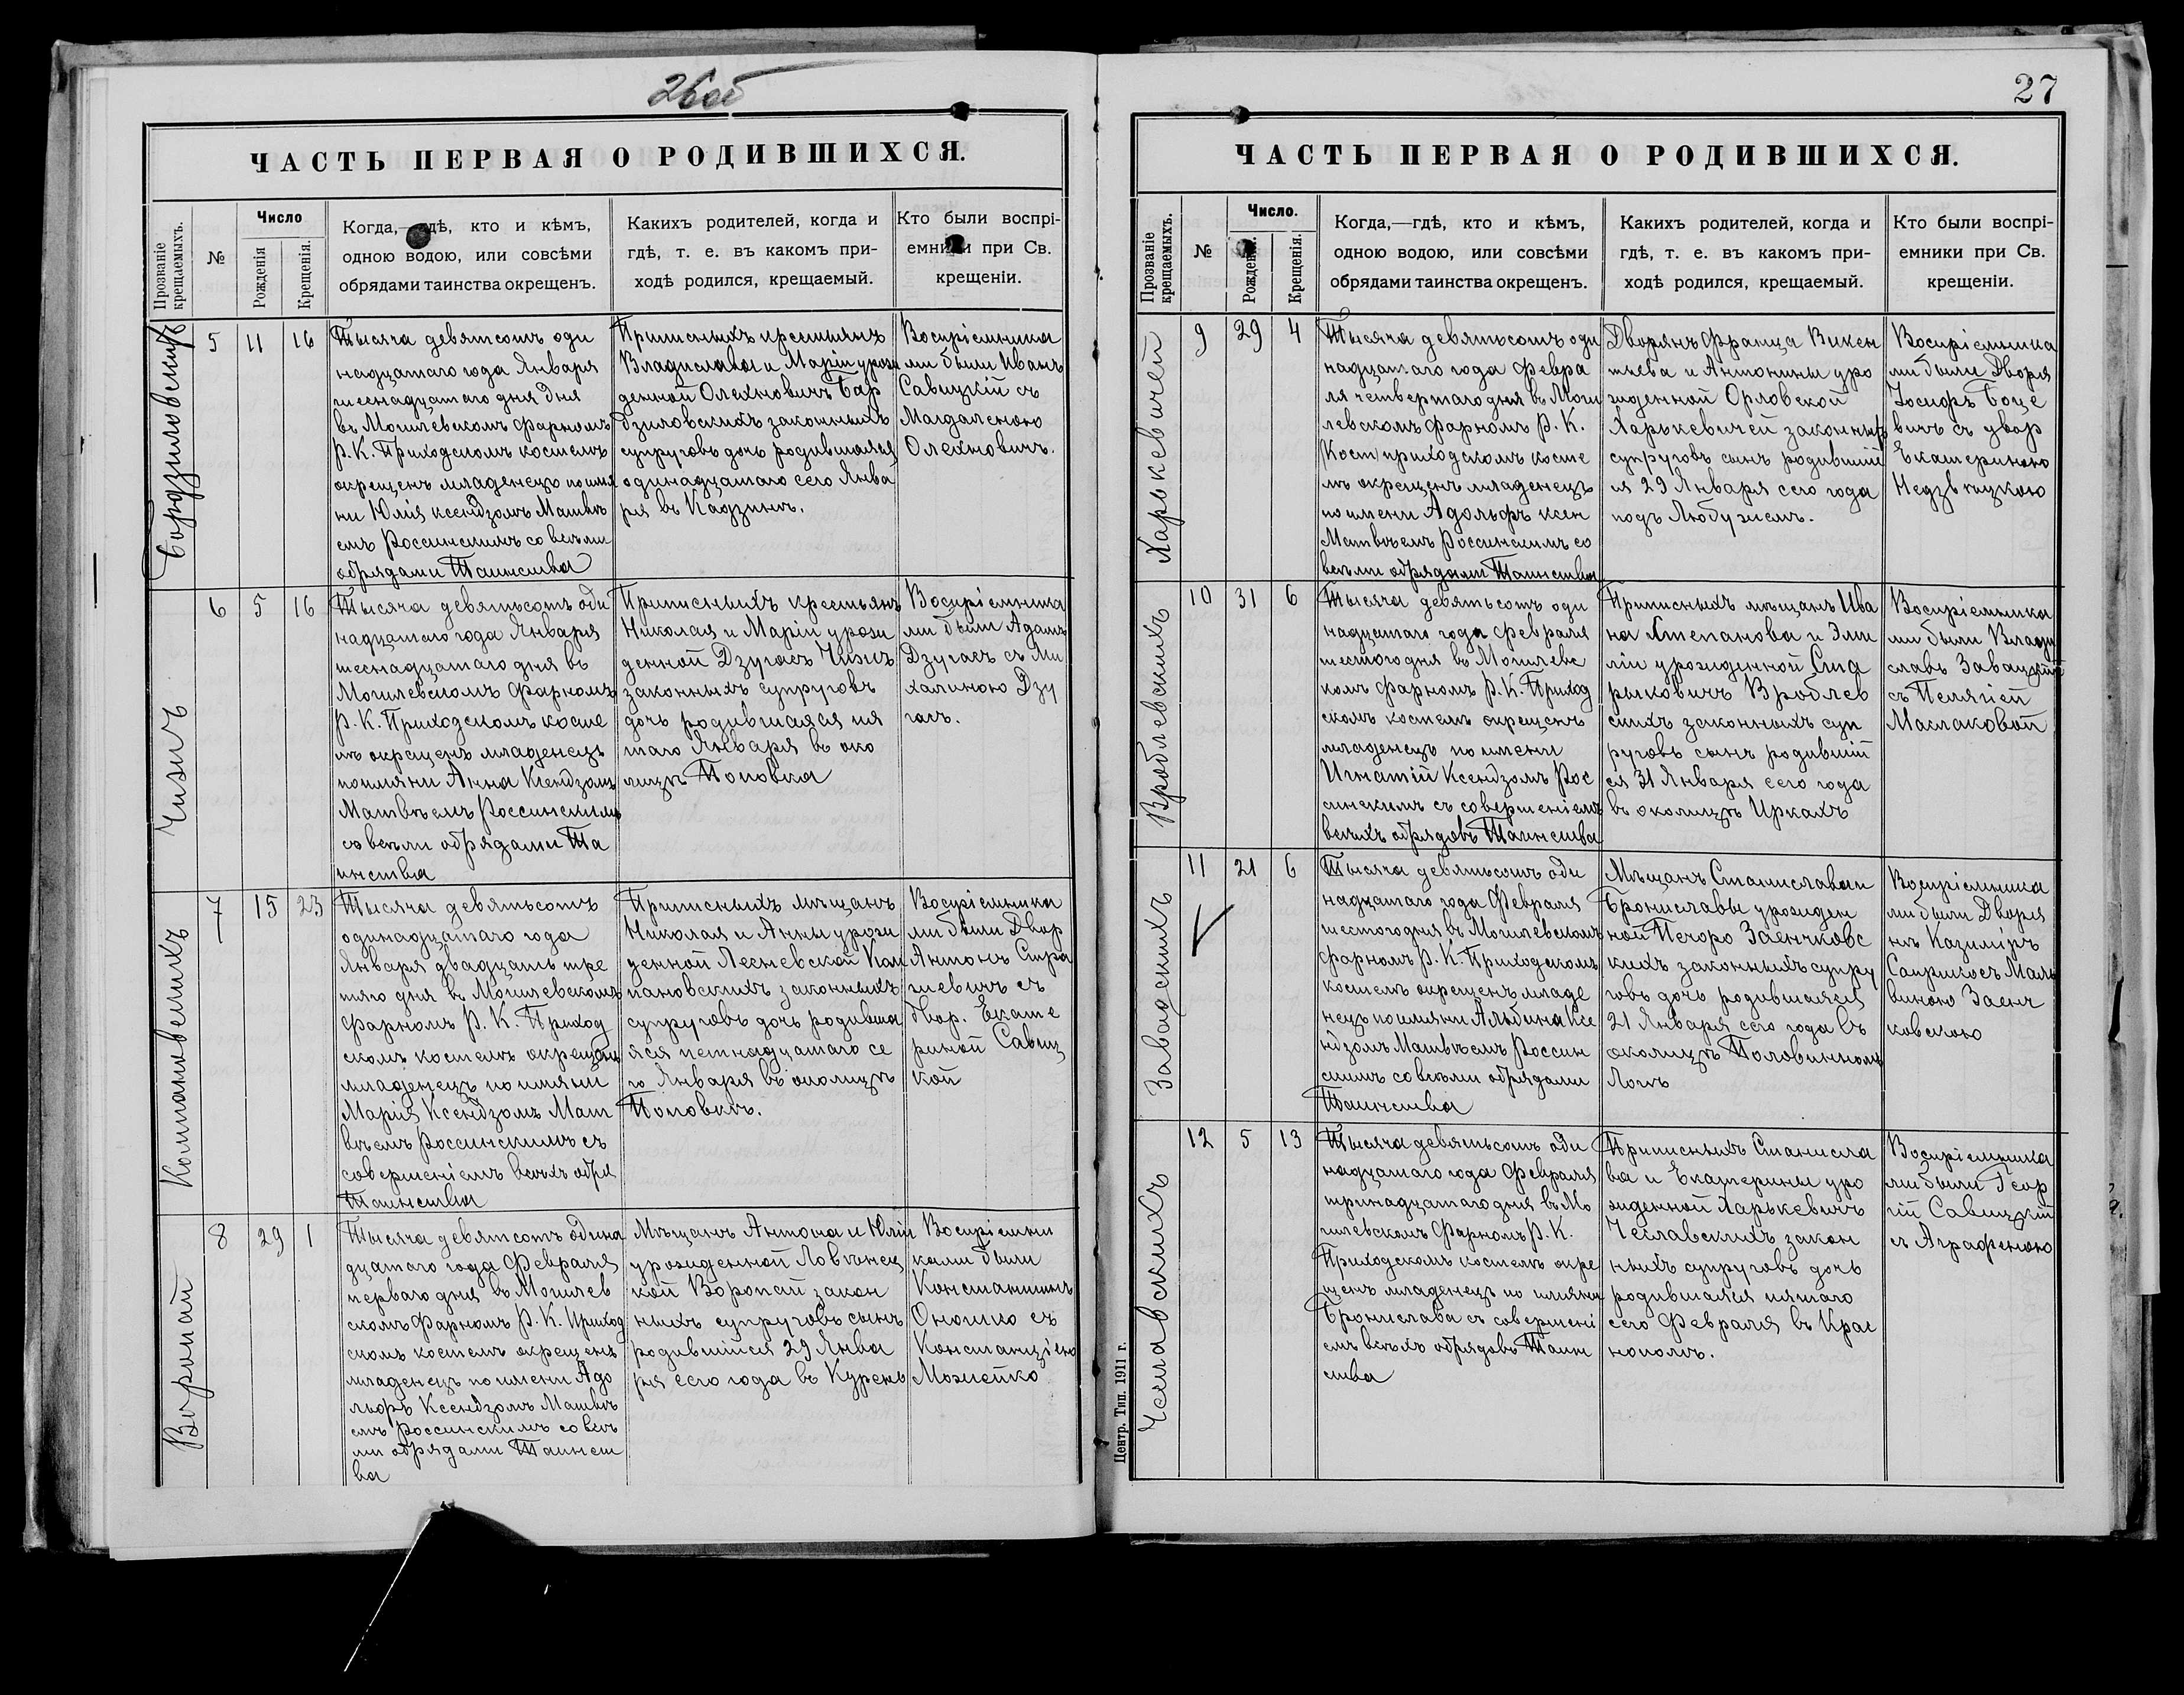 26об
ЧАСТЬ ПЕРВАЯ О РОДИВШИХСЯ.
Прозваніе крещаемыхъ.
№
Число
Рожденія
Крещенія.
Когда,—гдѣ, кто и кѣмъ,
одною водою, или совсѣми
обрядами таинства окрещенъ.
Какихъ родителей, когда и
гдѣ, т. е. въ какомъ при-
ходѣ родился, крещаемый.
Кто были воспрі-
емники при Св.
крещеніи.
5 11 16
Тысяча девятсотъ оди
надцатаго года Января
шеснадцатаго дня дня
въ Могилевскомъ фарномъ
Р. К. Приходскомъ костелѣ
окрещенъ младенецъ по имя
ни Юлія ксендзомъ Матвѣ
емъ Россинскимъ со всѣми
обрядами Таинства
Приписныхъ крестьянъ
Владислава и Маріи урож
денной Олехновичъ Бар
дзиловскихъ законныхъ
супруговъ дочь родившаяся
одинадцатаго сего Янва
ря въ Кадзинѣ.
Воспріемника
ми были Иванъ
Савицкій съ
Магдаленою
Олехновичъ.
Чижъ
6 5 16
Тысяча девятьсотъ оди
надцатаго года Января
шеснадцатаго дня въ
Могилевскомъ Фарномъ
Р. К. Приходскомъ косте
лѣ окрещенъ младенецъ
по имяни Анна Ксендзомъ
Матвѣемъ Россинскимъ
со всѣми обрядами Та
инства
Приписныхъ крестьянъ
Николая и Маріи урож
денной Дзугасъ Чижъ
законныхъ супруговъ
дочь родившаяся пя
таго Января въ око
лицѣ Поповка
Воспріемника
ми были Адамъ
Дзугасъ съ Ми
халиною Дзу
гасъ.
7 15 23
Тысяча девятьсотъ
одинадцатаго года
Января двадцать тре
тяго дня въ Могилевскомъ
фарномъ Р. К. Приход
скомъ костелѣ окрещенъ
младенецъ по имяни
Марія Ксендзомъ Мат
вѣемъ Россинскимъ съ
совершеніемъ всѣхъ обря
Таинства
Приписныхъ мѣщанъ
Николая и Анны урож
денной Лесневской Кам
пановскихъ законныхъ
супруговъ дочь родивша
яся петнадцатаго се
го Января въ околицѣ
Поповкѣ.
Воспріемника
ми были Двор
Антонъ
съ
Двор. Екате
риной Савиц
кой
Воропай
8 29 1
Тысяча девятсотъ одина
дцатаго года Февраля
перваго дня въ Могилев
скомъ Фарномъ Р. К. Приход
скомъ костелѣ окрещенъ
младенецъ по имени Адо
льфъ Ксендзомъ Матвѣ
емъ Россинскимъ со всѣ
ми обрядами Таинст
ва
Мѣщанъ Антона и Юліи
урожденной Ловѣнец
кой Воропай закон
ныхъ супруговъ сынъ
родившійся 29 Янва
ря сего года въ Курень
Воспріемни
ками были
Константинъ
Оношко съ
Констанціею
Можейко
27
ЧАСТЬ ПЕРВАЯ О РОДИВШИХСЯ.
Прозваніе крещаемыхъ.
№
Число.
Рожденія.
Крещенія.
Когда,—гдѣ, кто и кѣмъ,
одною водою, или совсѣми
обрядами таинства окрещенъ.
Какихъ родителей, когда и
гдѣ, т. е. въ какомъ при-
ходѣ родился, крещаемый.
Кто были воспрі-
емники при Св.
крещеніи.
Харькевичей
9 29 4
Тысяча девятьсотъ оди
надцатаго года Февра
ля четвертаго дня въ Моги
левскомъ фарномъ Р. К.
(Кост) приходскомъ косте
лѣ окрещенъ младенецъ
по имени Адольфъ ксен
Матвѣемъ Россинскимъ со
всѣми обрядами Таинства
Дворянъ Франца Викен
тьева и Антонины уро
жденной Орловской
Харькевичей законныхъ
супруговъ сынъ родивший
ся 29 Января сего года
подъ Любужемъ.
Воспріемника
ми были Дворя
Іосифъ Боце
вичъ съ двор
Екатериною
Недзвѣцкою
Врублевскихъ
10 31 6
Тысяча девятьсотъ оди
надцатаго года Февраля
шестого дня въ Могилевс
комъ Фарномъ Р. К. Приход
скомъ костелѣ окрещенъ
младенецъ по имени
Игнатій Ксендзомъ Рос
синскимъ съ совершеніемъ
всѣхъ обрядовъ Таинства
Приписныхъ мѣщанъ Ива
на Степанова и Эми
ліи урожденной Ста
рыковичъ Врублев
скихъ законныхъ суп
руговъ сынъ родивший
ся 31 Января сего года
въ околицѣ Иркахъ
Воспріемника
ми были Влади
славъ Завадскій
съ Пелягіей
Маслаковой
Завадскихъ
11 21 6
Тысяча девятьсотъ оди
надцатаго года Февраля
шестого дня въ Могилевскомъ
фарномъ Р. К. Приходскомъ
костелѣ окрещенъ младе
нецъ по имяни Альбина Ксе
ндзомъ Матвѣемъ Россин
скимъ со всѣми обрядами
Таинства
Мѣщанъ Станислава и
Брониславы урожден
ной Печоро Заенчковс
кихъ законныхъ супру
говъ дочь родившаяся
21 Января сего года въ
околицѣ Половинномъ
Логѣ
Воспріемника
ми были Дворя
нъ Казиміръ
съ Маль
виною Заенч
ковскою
Чеславскихъ
12 5 13
Тысяча девятьсотъ оди
надцатаго года Февраля
тринадцатаго дня въ Мо
гилевскомъ Фарномъ Р. К.
Приходскомъ костелѣ окре
щенъ младенецъ по имяни
Бронислава съ совершені
емъ всѣхъ обрядовъ Таин
ства
Приписныхъ Станисла
ва и Екатерины уро
жденной Харькевичъ
Чеславскихъ закон
ныхъ супруговъ дочь
родившаяся пятаго
сего Февраля въ Крас
нополѣ.
Воспріемника
ми были Геор
гій Савицкій
съ Аграфеною
Центр. Тип. 1911 г.